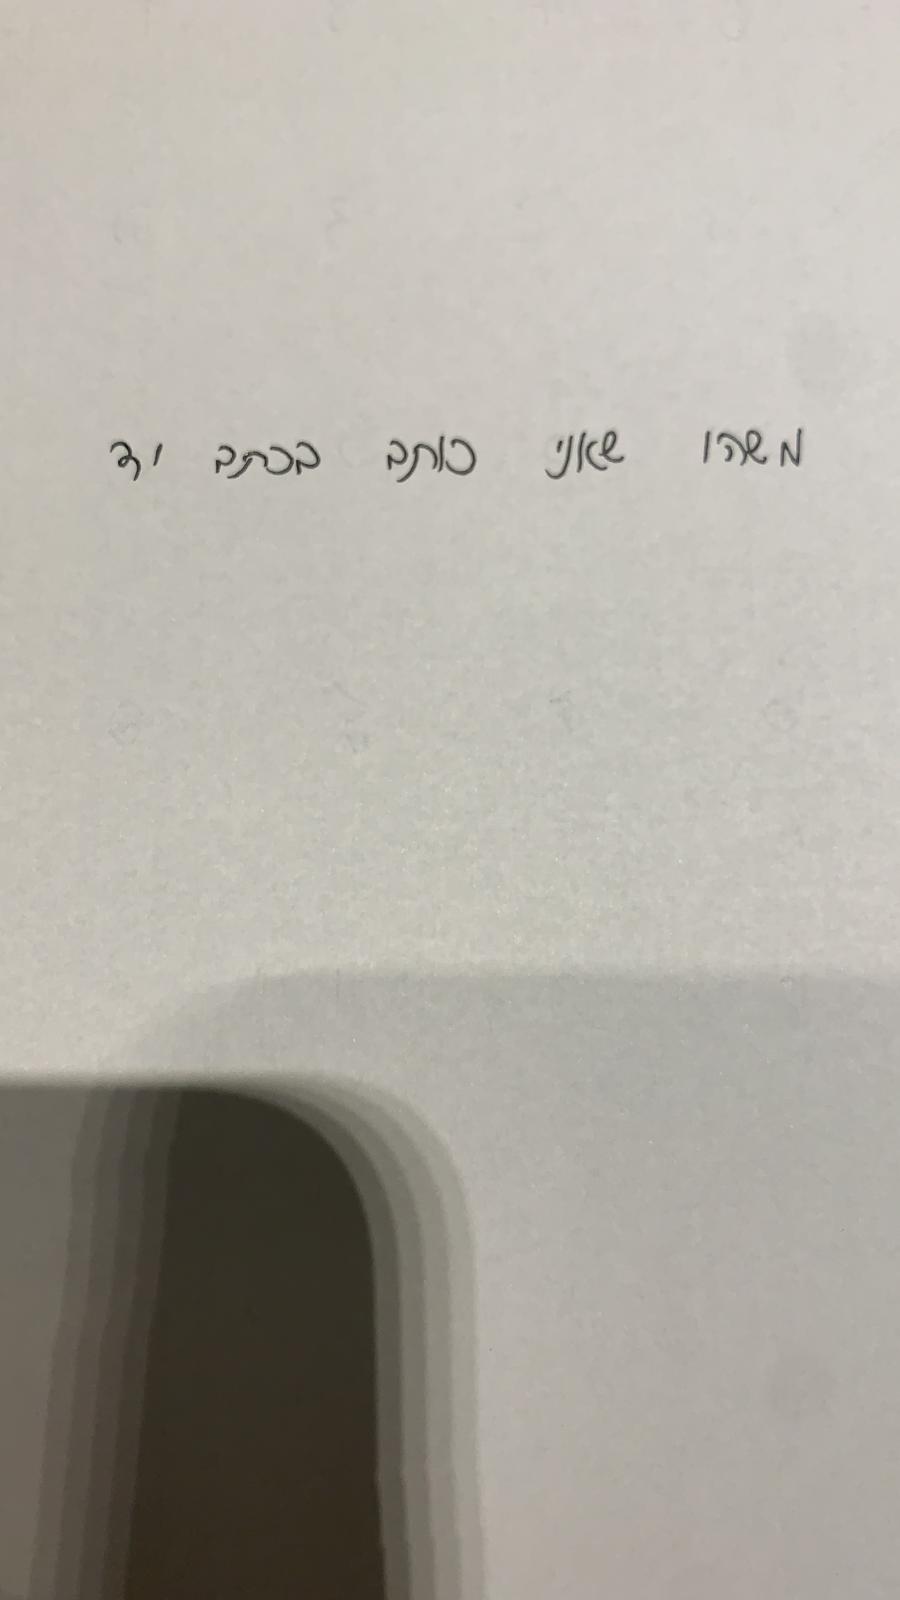 משהו שאני כותב בכתב יד